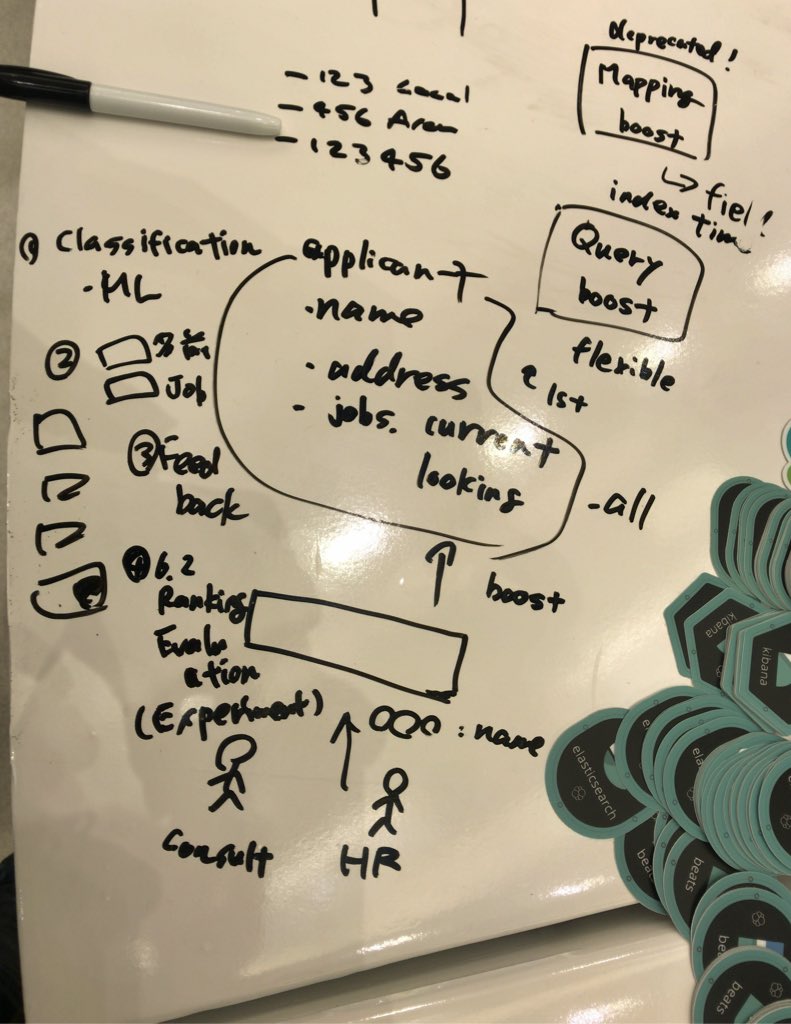 deprecated!
Mapping
boost
- 123 Local
- 456 Area
- 123456
↳ fiel!
index time
Query
boost
flexible
① Classification
・ML
applicant
・name
・address
・jobs. current
looking
1st
-all
②
Job
③ Feed
back
boost
④ 6.2
Ranking
Evalu
ation
(Experiment)
○○○ : name
Consult
HR
kibana
kibana
elasticsearch
beats
beats
beats